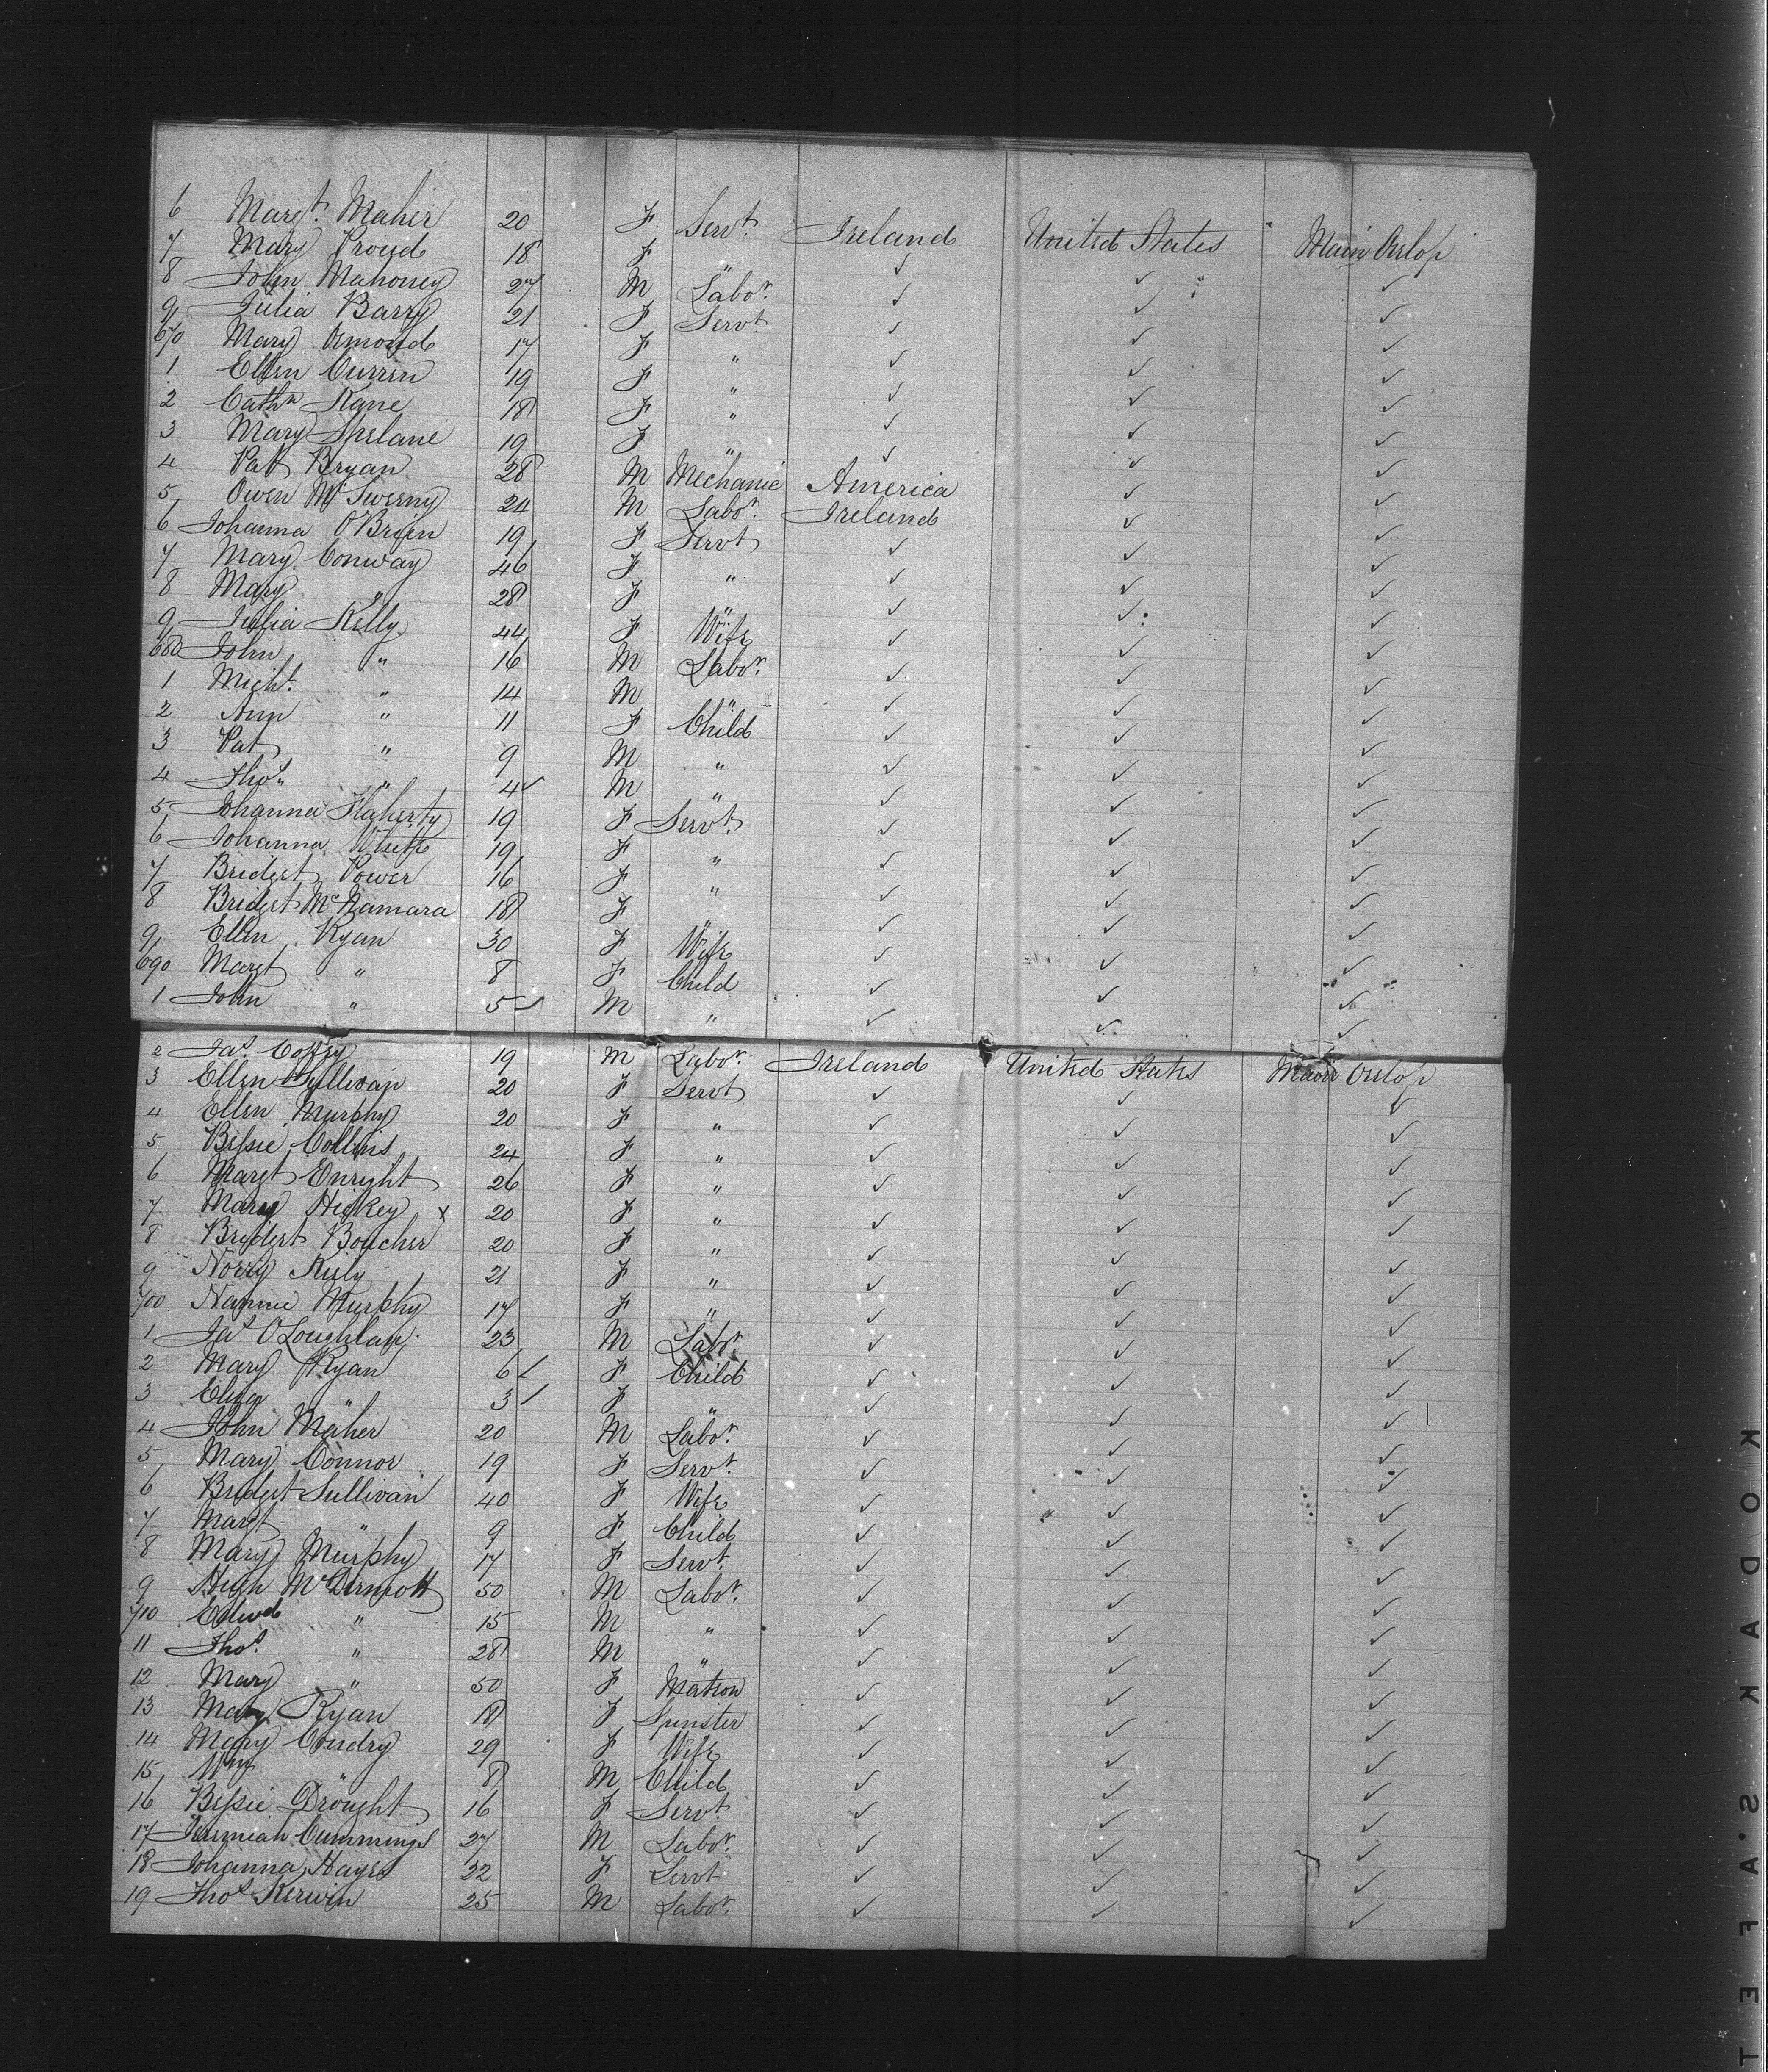 6 Margt. Maher 20 F Servt. Ireland United States Main Orlop
7 Mary Proud 18 F " ✓ ✓ ✓
8 John Mahoney 27 M Labor. ✓ ✓ ✓
9 Julia Barry 21 F Servt ✓ ✓ ✓
670 Mary Osmond 17 F " ✓ ✓ ✓
1 Ellen Curren 19 F " ✓ ✓ ✓
2 Cathn Kane 18 F " ✓ ✓ ✓
3 Mary Spelane 19 F " ✓ ✓ ✓
4 Pat Bryan 28 M Mechanic America ✓ ✓
5 Owen McSwerny 24 M Labor. Ireland ✓ ✓
6 Johanna O'Brien 19 F Servt ✓ ✓ ✓
7 Mary Conway 46 F " ✓ ✓ ✓
8 Mary " 28 F " ✓ ✓ ✓
9 Julia Kelly 44 F Wife ✓ ✓ ✓
680 John " 16 M Labor. ✓ ✓ ✓
1 Micht. " 14 M " ✓ ✓ ✓
2 Ann " 11 F Child ✓ ✓ ✓
3 Pat " 9 M " ✓ ✓ ✓
4 Thos. " 4 ✓ M " ✓ ✓ ✓
5 Johanna Flaherty 19 F Servt. ✓ ✓ ✓
6 Johanna White 19 F " ✓ ✓ ✓
7 Bridget Power 16 F " ✓ ✓ ✓
8 Bridget McNamara 18 F " ✓ ✓ ✓
9 Ellen Ryan 30 F Wife ✓ ✓ ✓
690 Margt " 8 F Child ✓ ✓ ✓
1 John " 5 ✓ M " ✓ ✓ ✓
2 Jas. Coffey 19 M Labor. Ireland United States Main Orlop
3 Ellen Sullivan 20 F Servt ✓ ✓ ✓
4 Ellen Murphy 20 F " ✓ ✓ ✓
5 Bessie Collins 24 F " ✓ ✓ ✓
6 Margt Enright 26 F " ✓ ✓ ✓
7 Mary Hickey x 20 F " ✓ ✓ ✓
8 Bridget Boucher 20 F " ✓ ✓ ✓
9 Norry Kiely 21 F " ✓ ✓ ✓
700 Nannie Murphy 17 F " ✓ ✓ ✓
1 Jas O'Loughlan. 23 M Labr. ✓ ✓ ✓
2 Mary Ryan 6 ✓ F Child ✓ ✓ ✓
3 Eliza " 3 ✓ F " ✓ ✓ ✓
4 John Maher 20 M Labor. ✓ ✓ ✓
5 Mary Connor 19 F Servt. ✓ ✓ ✓
6 Bridget Sullivan 40 F Wife ✓ ✓ ✓
7 Margt " 9 F Child ✓ ✓ ✓
8 Mary Murphy 17 F Servt. ✓ ✓ ✓
9 Hugh McDermott 50 M Labor. ✓ ✓ ✓
710 Edwd " 15 M " ✓ ✓ ✓
11 Thos. " 28 M " ✓ ✓ ✓
12 Mary " 50 F Matron ✓ ✓ ✓
13 Mary Ryan 18 F Spinster ✓ ✓ ✓
14 Mary Condry 29 F Wife ✓ ✓ ✓
15 Wm " 8 M Child ✓ ✓ ✓
16 Bessie Drought 16 F Servt. ✓ ✓ ✓
17 Jeremiah Cummings 27 M Labor. ✓ ✓ ✓
18 Johanna Hayes 22 F Servt ✓ ✓ ✓
19 Thos Kerwin 25 M Labor. ✓ ✓ ✓
KODAK S.AFET